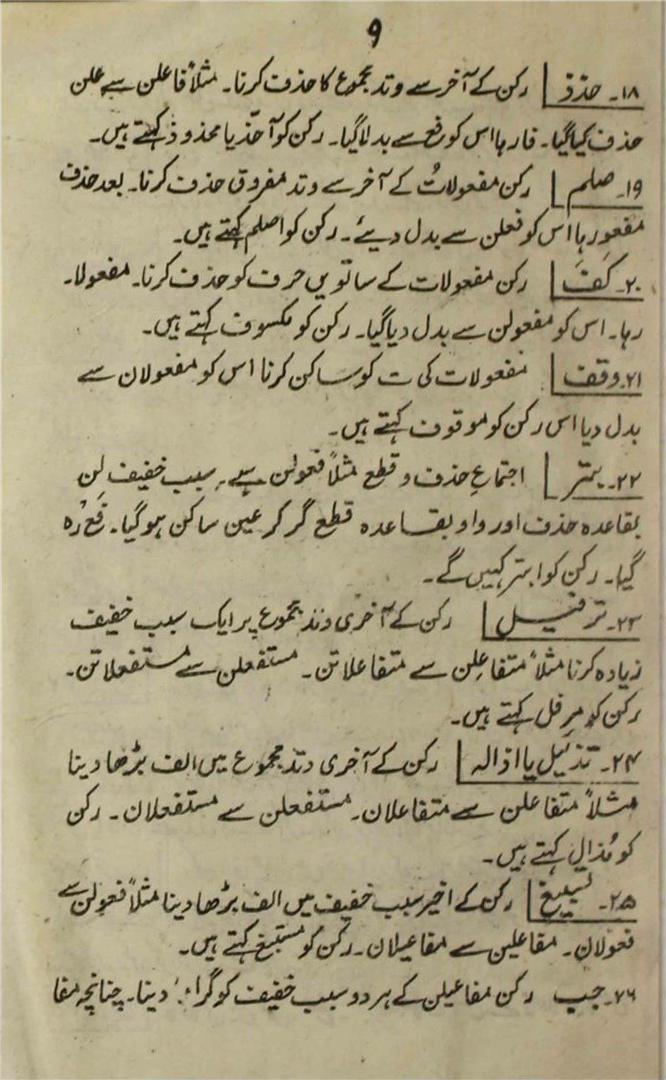 ۹
۱۸۔ حذذ | رکن کے آخر سے وتد مجموع کا حذف کرنا۔ مثلاً فاعلن سے علن
حذف کیا گیا۔ فا رہا اس کو رفع سے بدلا گیا۔ رکن کو آحذّ یا محذوذ کہتے ہیں۔
۱۹۔ صلم | رکن مفعولاتُ کے آخر سے وتد مفروق حذف کرنا۔ بعد حذف
مفعو رہا اس کو فعلن سے بدل دیئے۔ رکن کو اصلم کہتے ہیں۔
۲۰۔ کسف | رکن مفعولات کے ساتویں حرف کو حذف کرنا۔ مفعولا۔
رہا۔ اس کو مفعولن سے بدل دیا گیا۔ رکن کو مکسوف کہتے ہیں۔
۲۱۔ وقف | مفعولات کی ت کو ساکن کرنا اس کو مفعولان سے
بدل دیا اس رکن کو موقوف کہتے ہیں۔
۲۲۔ بتر | اجتماعِ حذف و قطع مثلاً فعولن سے۔ سبب خفیف لن
بقاعدہ حذف اور واو بقاعدہ قطع گر کر عین ساکن ہو گیا۔ فَعْ رہ
گیا۔ رکن کو ابتر کہیں گے۔
۲۳۔ ترفیل | رکن کے آخری وتد مجموع پر ایک سبب خفیف
زیادہ کرنا مثلاً متفاعِلن سے متفاعلاتن۔ مستفعلن سے مستفعلاتن۔
رکن کو مرفل کہتے ہیں۔
۲۴۔ تذئیل یا اذالہ | رکن کے آخری وتد مجموع میں الف بڑھا دینا
مثلاً متفاعلن سے متفاعلان۔ مستفعلن سے مستفعلان۔ رکن
کو مُذال کہتے ہیں۔
۲۵۔ تسبیغ | رکن کے اخیر سبب خفیف میں الف بڑھا دینا مثلاً فعولن سے
فعولان۔ مفاعلین سے مفاعیلان۔ رکن کو مستبغ کہتے ہیں۔
۲۶۔ جب رکن مفاعیلن کے ہر دو سبب خفیف کو گرا دینا۔ چنانچہ مفا